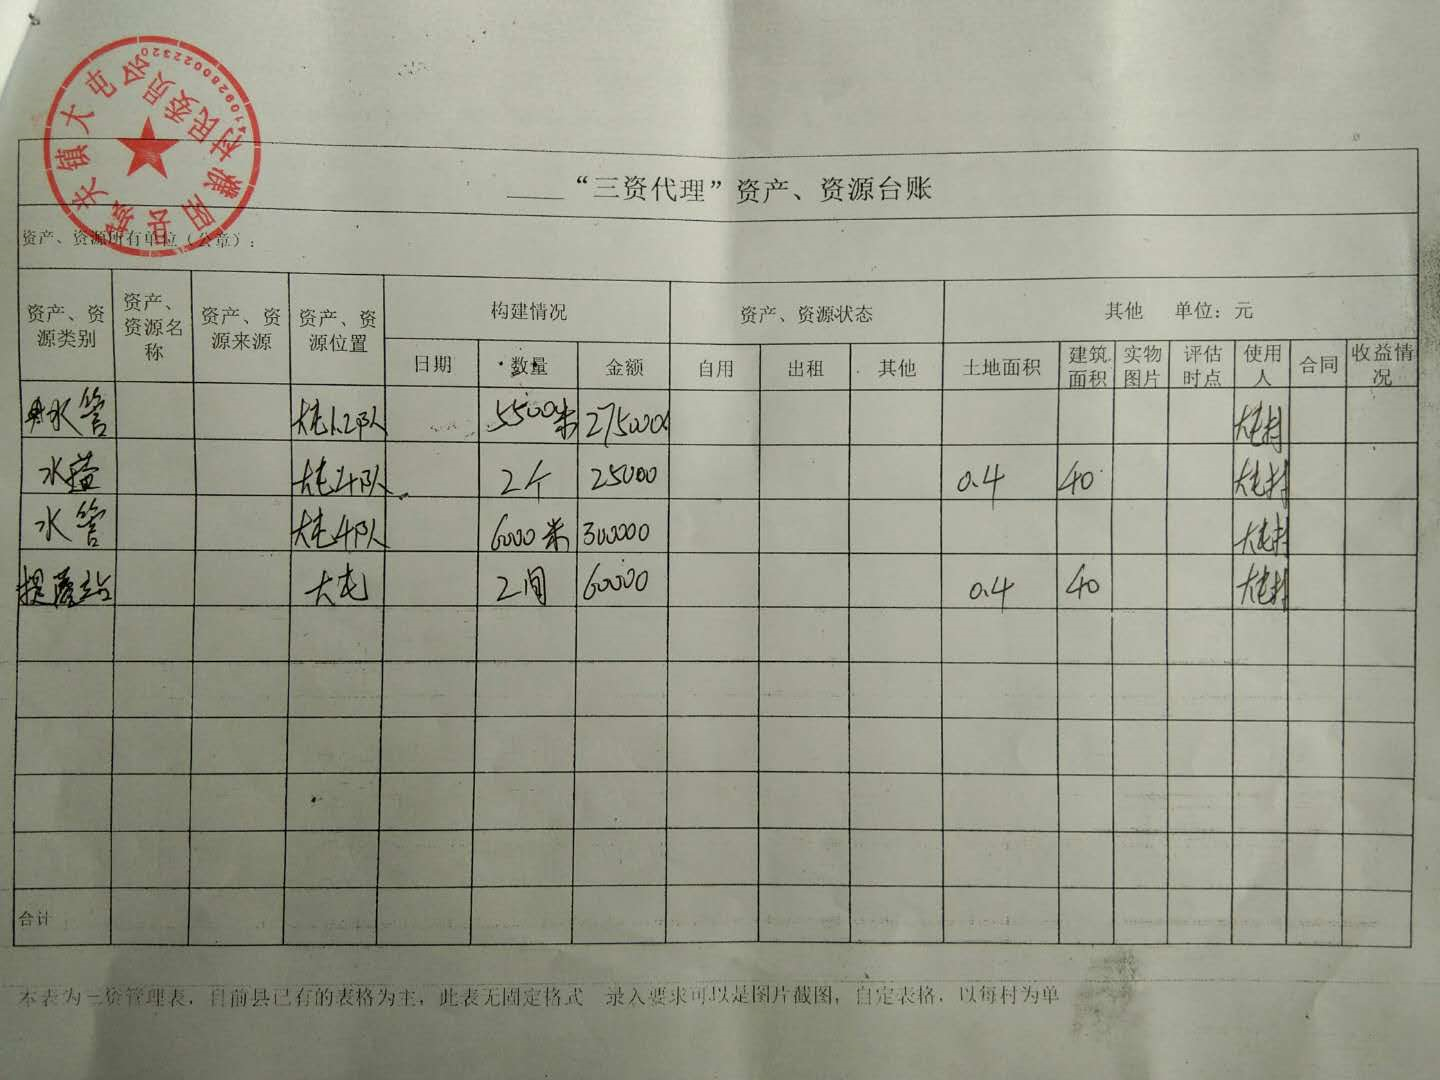 濮阳县梁庄头镇大屯村民委员会
4109280022320
____“三资代理”资产、资源台账
资产、资源所有单位（公章）：
资产、资源类别 资产、资源名称 资产、资源来源 资产、资源位置 构建情况 资产、资源状态 其他 单位：元
日期 数量 金额 自用 出租 其他 土地面积 建筑面积 实物图片 评估时点 使用人 合同 收益情况
水管 大屯1.2队 5500米 275000 大屯村
水塔 大屯4队 2个 25000 0.4 40 大屯村
水管 大屯4队 6000米 300000 大屯村
提灌站 大屯 2间 60000 0.4 40 大屯村
合计
本表为三资管理表，目前县已有的表格为主，此表无固定格式 录入要求可以是图片截图，自定表格，以每村为单